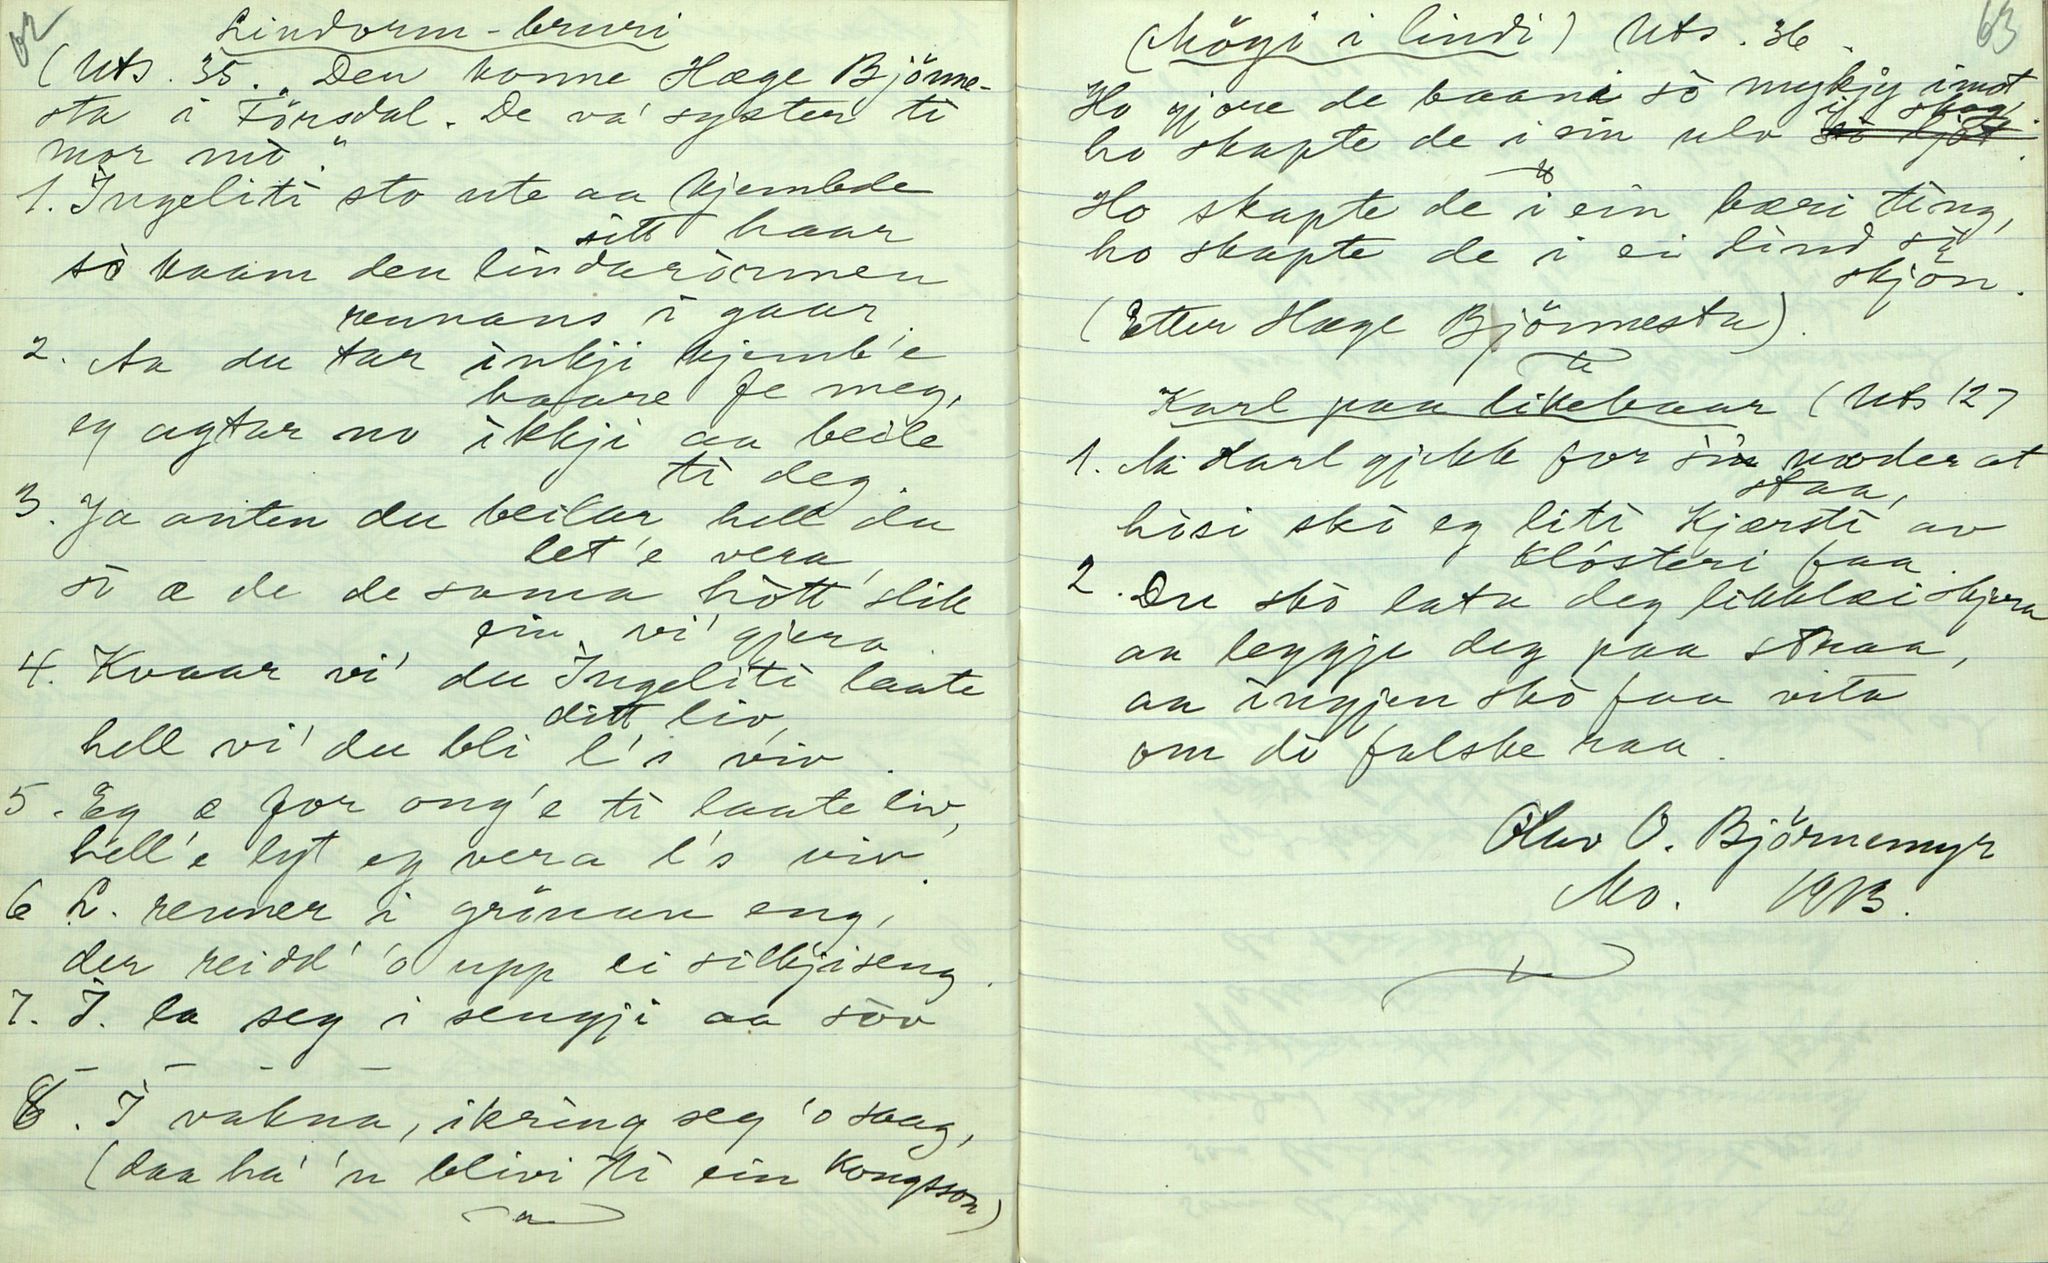 62
Lindorm-bruri
(Uts. 35. "Den konne Hæge Björnne-
sta i Försdal. De va' syster ti
mor mi."
1. Ingeliti sto ute aa kjembde
sitt haar
so kaam den lindarörmen
rennans i gaar.
2. Aa du tar inkji kjemb'e
haare fe meg,
eg agtar no ikkji aa beile
ti deg.
3. Ja anten du beilar hell du
let'e vera,
so æ de de sama hott slik
ein vi' gjera.
4. Kvaar vi' du Ingeliti laate
ditt liv,
hell vi' du bli l's viv.
5. Eg æ for ong'e ti laate liv,
hell'e lyt eg vera l's viv.
6 L. renner i grönan eng,
der reidd' 'o upp ei silkjiseng.
7. I. la seg i sengji aa söv
– – – –
8. I vakna, ikring seg 'o saag,
(daa ha' 'n blivi ti ein Kongsson)
63
(Möyi i lindi) Uts. 36.
Ho gjore de baani so mykjy imot
i skog
ho skapte de i ein ulv so ljot.
Ho skapte de i ein bæri ting,
ho skapte de i ei lind so
skjön.
(Etter Hæge Björnnesta).
Karl paa likebaar (Uts 127
1. Aa Karl gjekk for sin moder at
staa,
hosi sko eg liti Kjærsti av
klósteri faa.
2. Du sko lata deg likklæi skjera
aa leggje deg paa straa,
aa ingjen sko faa vita
om di falske raa.
Olav O. Björnemyr
Mo. 1913.